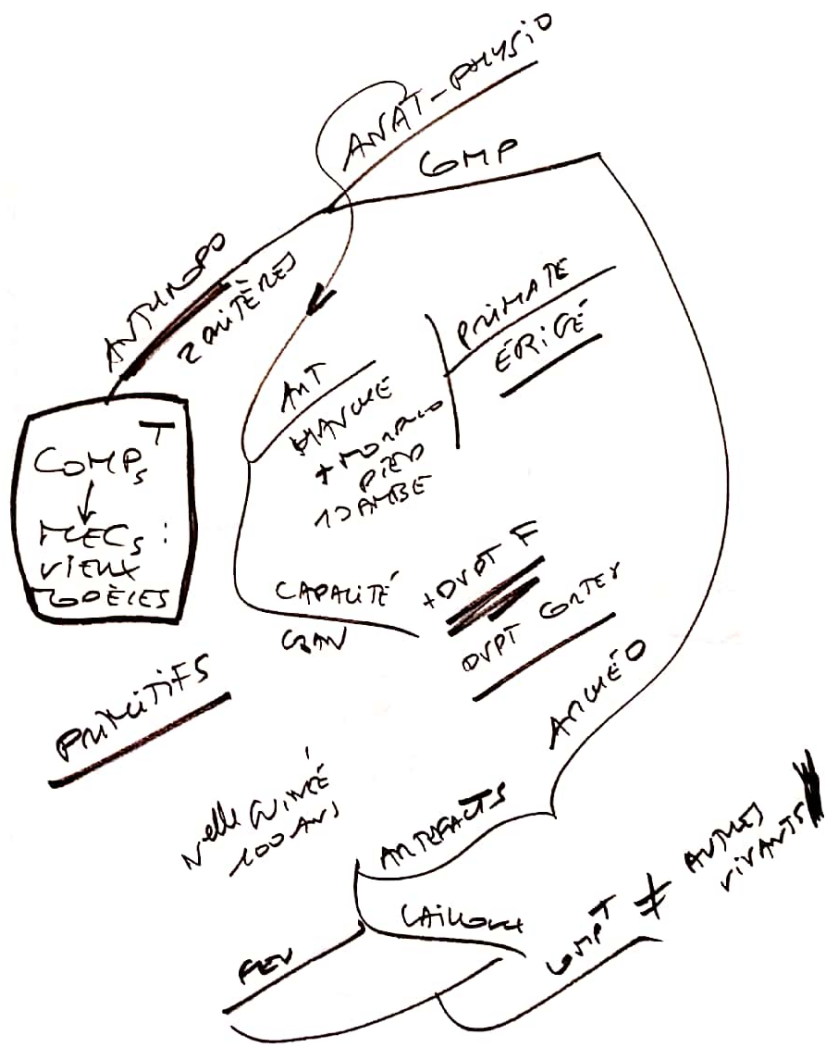 ANAT-PHYSIO
COMP
ANTHROPO
2 CRITÈRES
PRIMATE
ÉRIGÉ
ART
HANCHE
+ MORPHO
PIED
JAMBE
COMPS T
↓
MECS :
VIEUX
MODÈLES
CAPACITÉ
CRAN
+ DVPT F
DVPT CORTEX
PRIMITIFS
ARCHÉO
Nelle GUINÉE
100 ANS
ARTEFACTS
CAILLOUX
FEU
COMPT ≠ AUTRES
VIVANTS